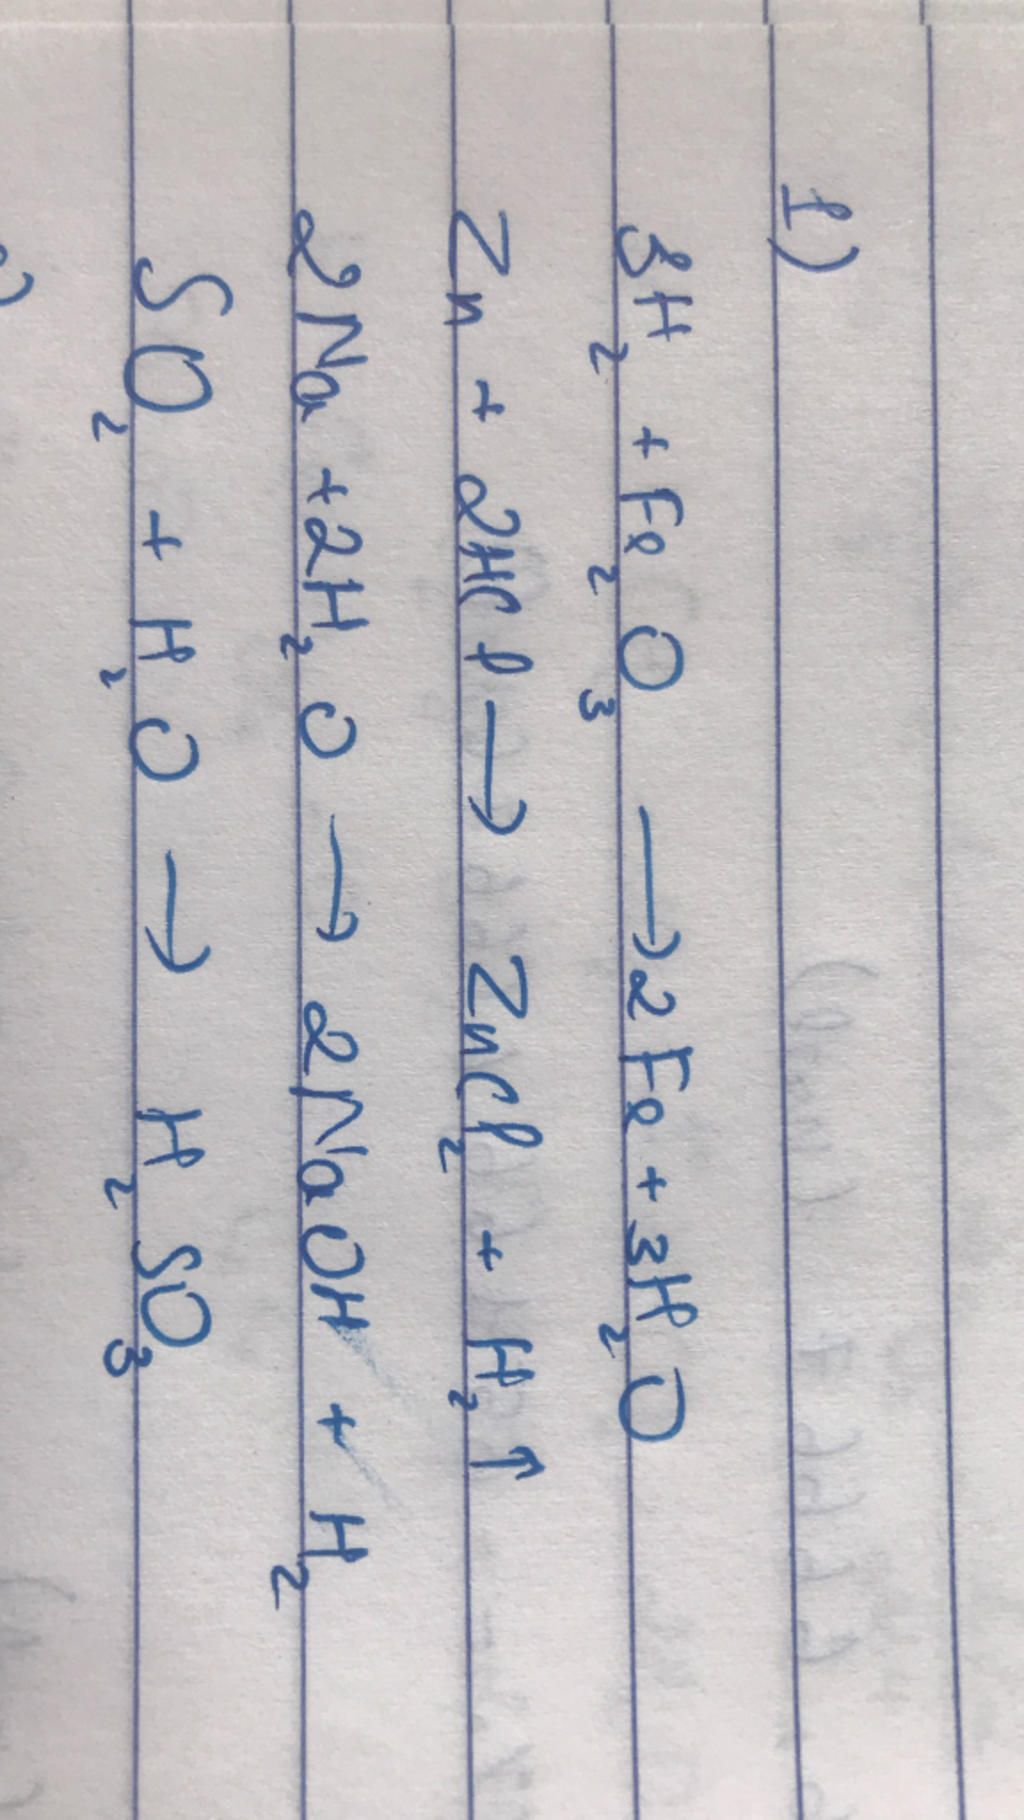 1)
3H₂ + Fe₂O₃ → 2Fe + 3H₂O
Zn + 2HCl → ZnCl₂ + H₂↑
2Na + 2H₂O → 2NaOH + H₂
SO₂ + H₂O → H₂SO₃